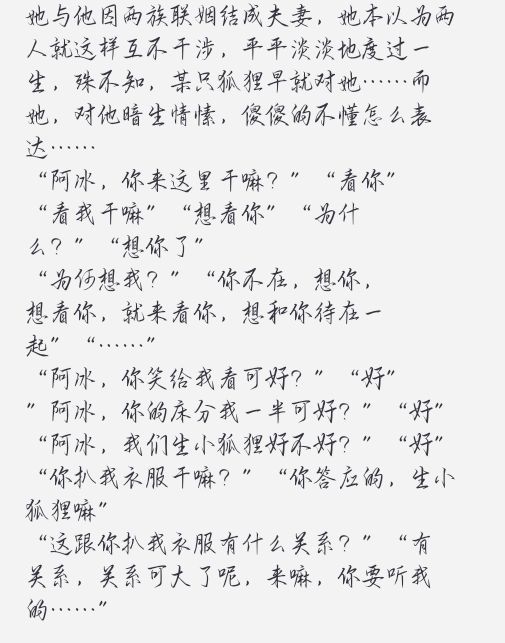 她与他因两族联姻结成夫妻，她本以为两
人就这样互不干涉，平平淡淡地度过一
生，殊不知，某只狐狸早就对她……而
她，对他暗生情愫，傻傻的不懂怎么表
达……
“阿冰，你来这里干嘛？”“看你”
“看我干嘛”“想看你”“为什
么？”“想你了”
“为何想我？”“你不在，想你，
想看你，就来看你，想和你待在一
起”“……”
“阿冰，你笑给我看可好？”“好”
”阿冰，你的床分我一半可好？”“好”
“阿冰，我们生小狐狸好不好？”“好”
“你扒我衣服干嘛？”“你答应的，生小
狐狸嘛”
“这跟你扒我衣服有什么关系？”“有
关系，关系可大了呢，来嘛，你要听我
的……”